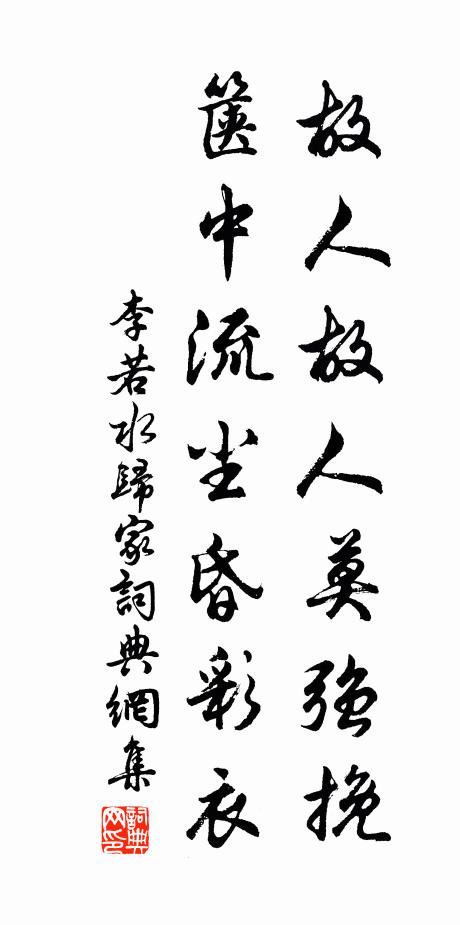 故人故人莫強挽
篋中流尘昏彩衣
李若水歸家詞典網集
詞典网印